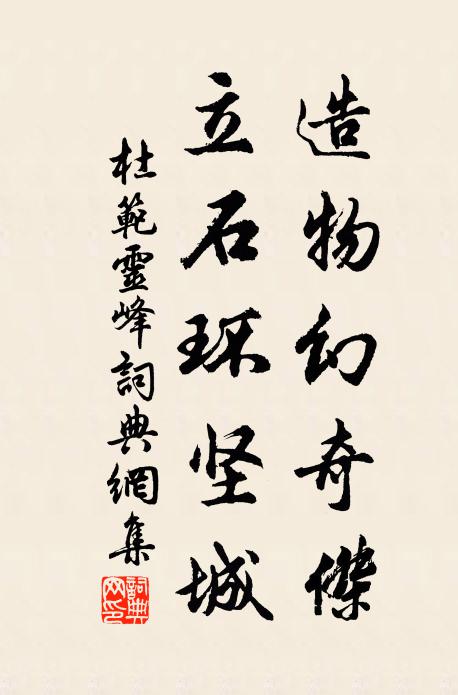 造物幻奇傑
立石环坚城
杜範靈峰詞典網集
詞典網印